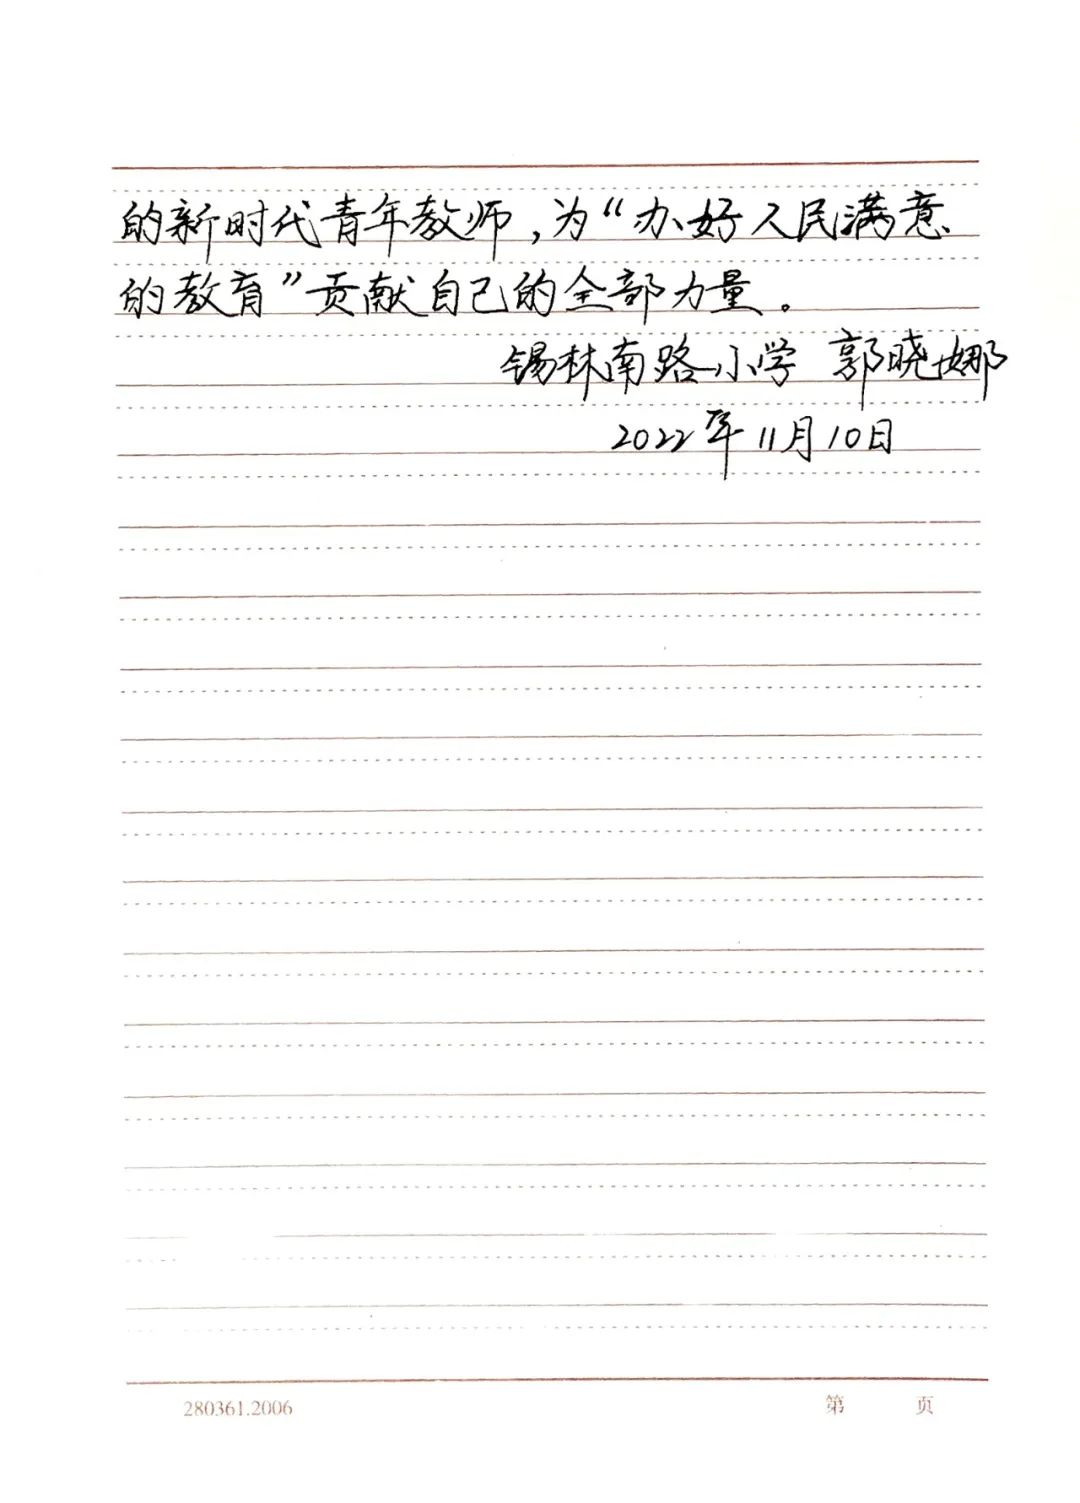 的新时代青年教师，为“办好人民满意
的教育”贡献自己的全部力量。
锡林南路小学 郭晓娜
2022年11月10日
280361.2006 第 页